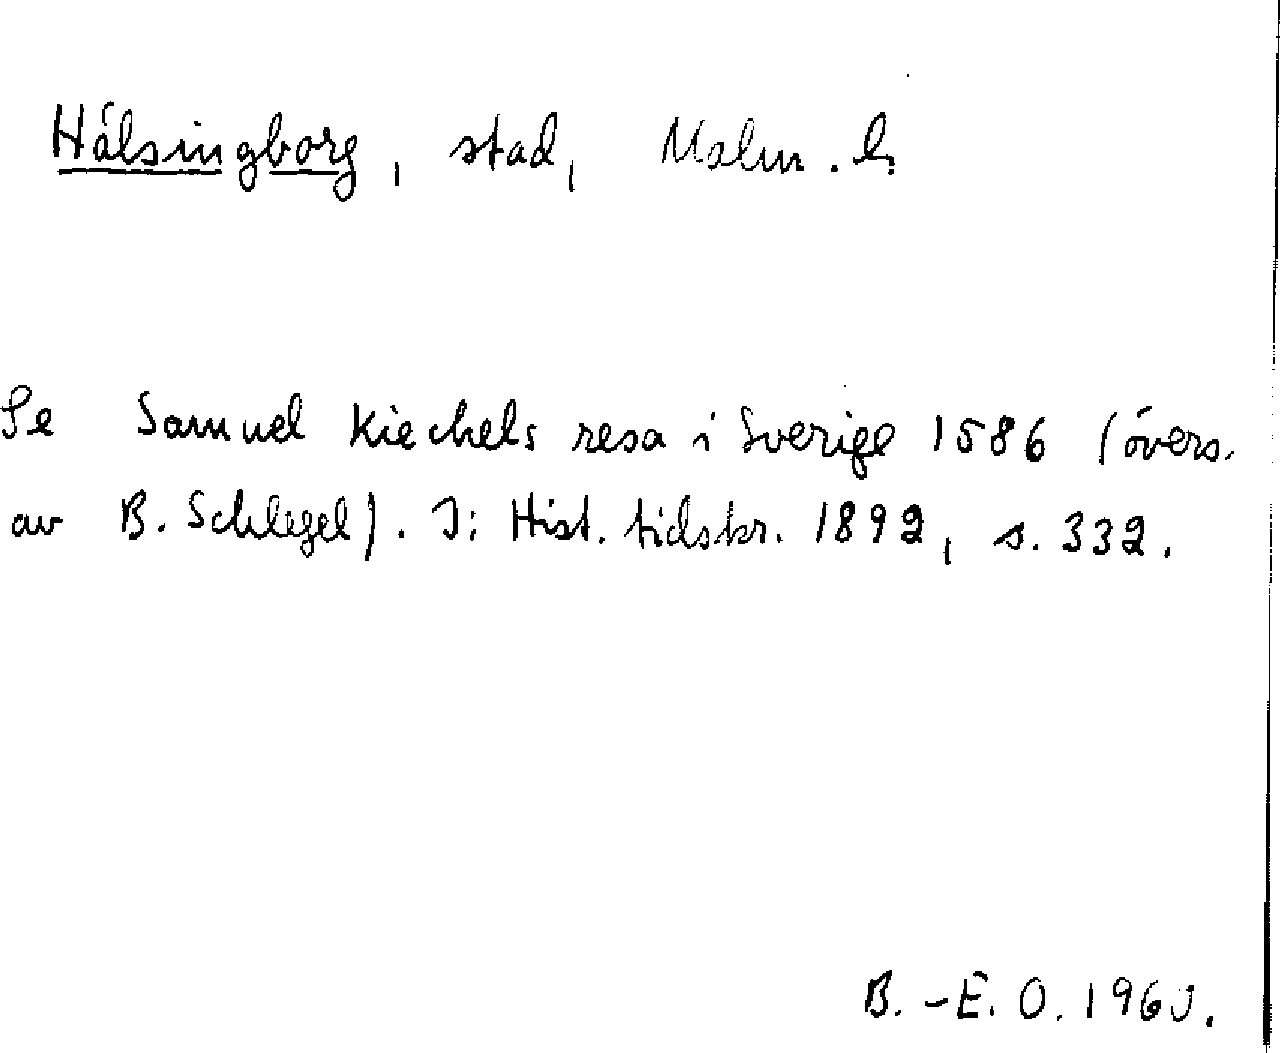 Hälsingborg, stad, Malm. l.
Se Samuel Kiechels resa i Sverige 1586 (övers.
av B. Schlegel). I: Hist. tidskr. 1892, s. 332.
B.-E. O. 1960.